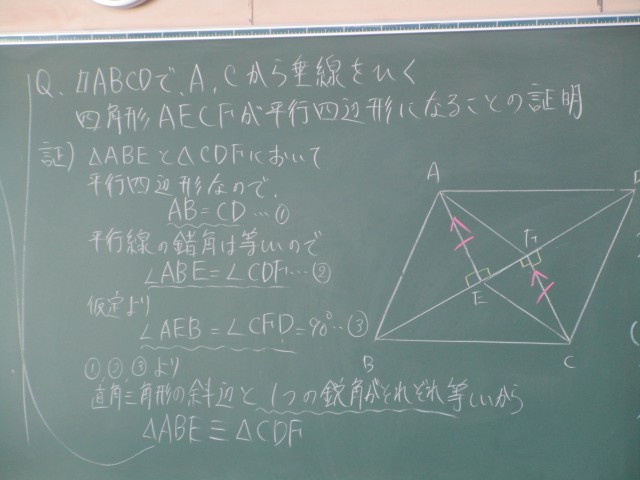 Q. ▱ABCDで、A, Cから垂線をひく
四角形AECFが平行四辺形になることの証明
証) △ABEと△CDFにおいて
平行四辺形なので、
AB=CD…①
平行線の錯角は等しいので
∠ABE=∠CDF…②
仮定より
∠AEB=∠CFD=90°…③
①,②,③より
直角三角形の斜辺と1つの鋭角がそれぞれ等しいから
△ABE≡△CDF
A
D
F
E
B
C